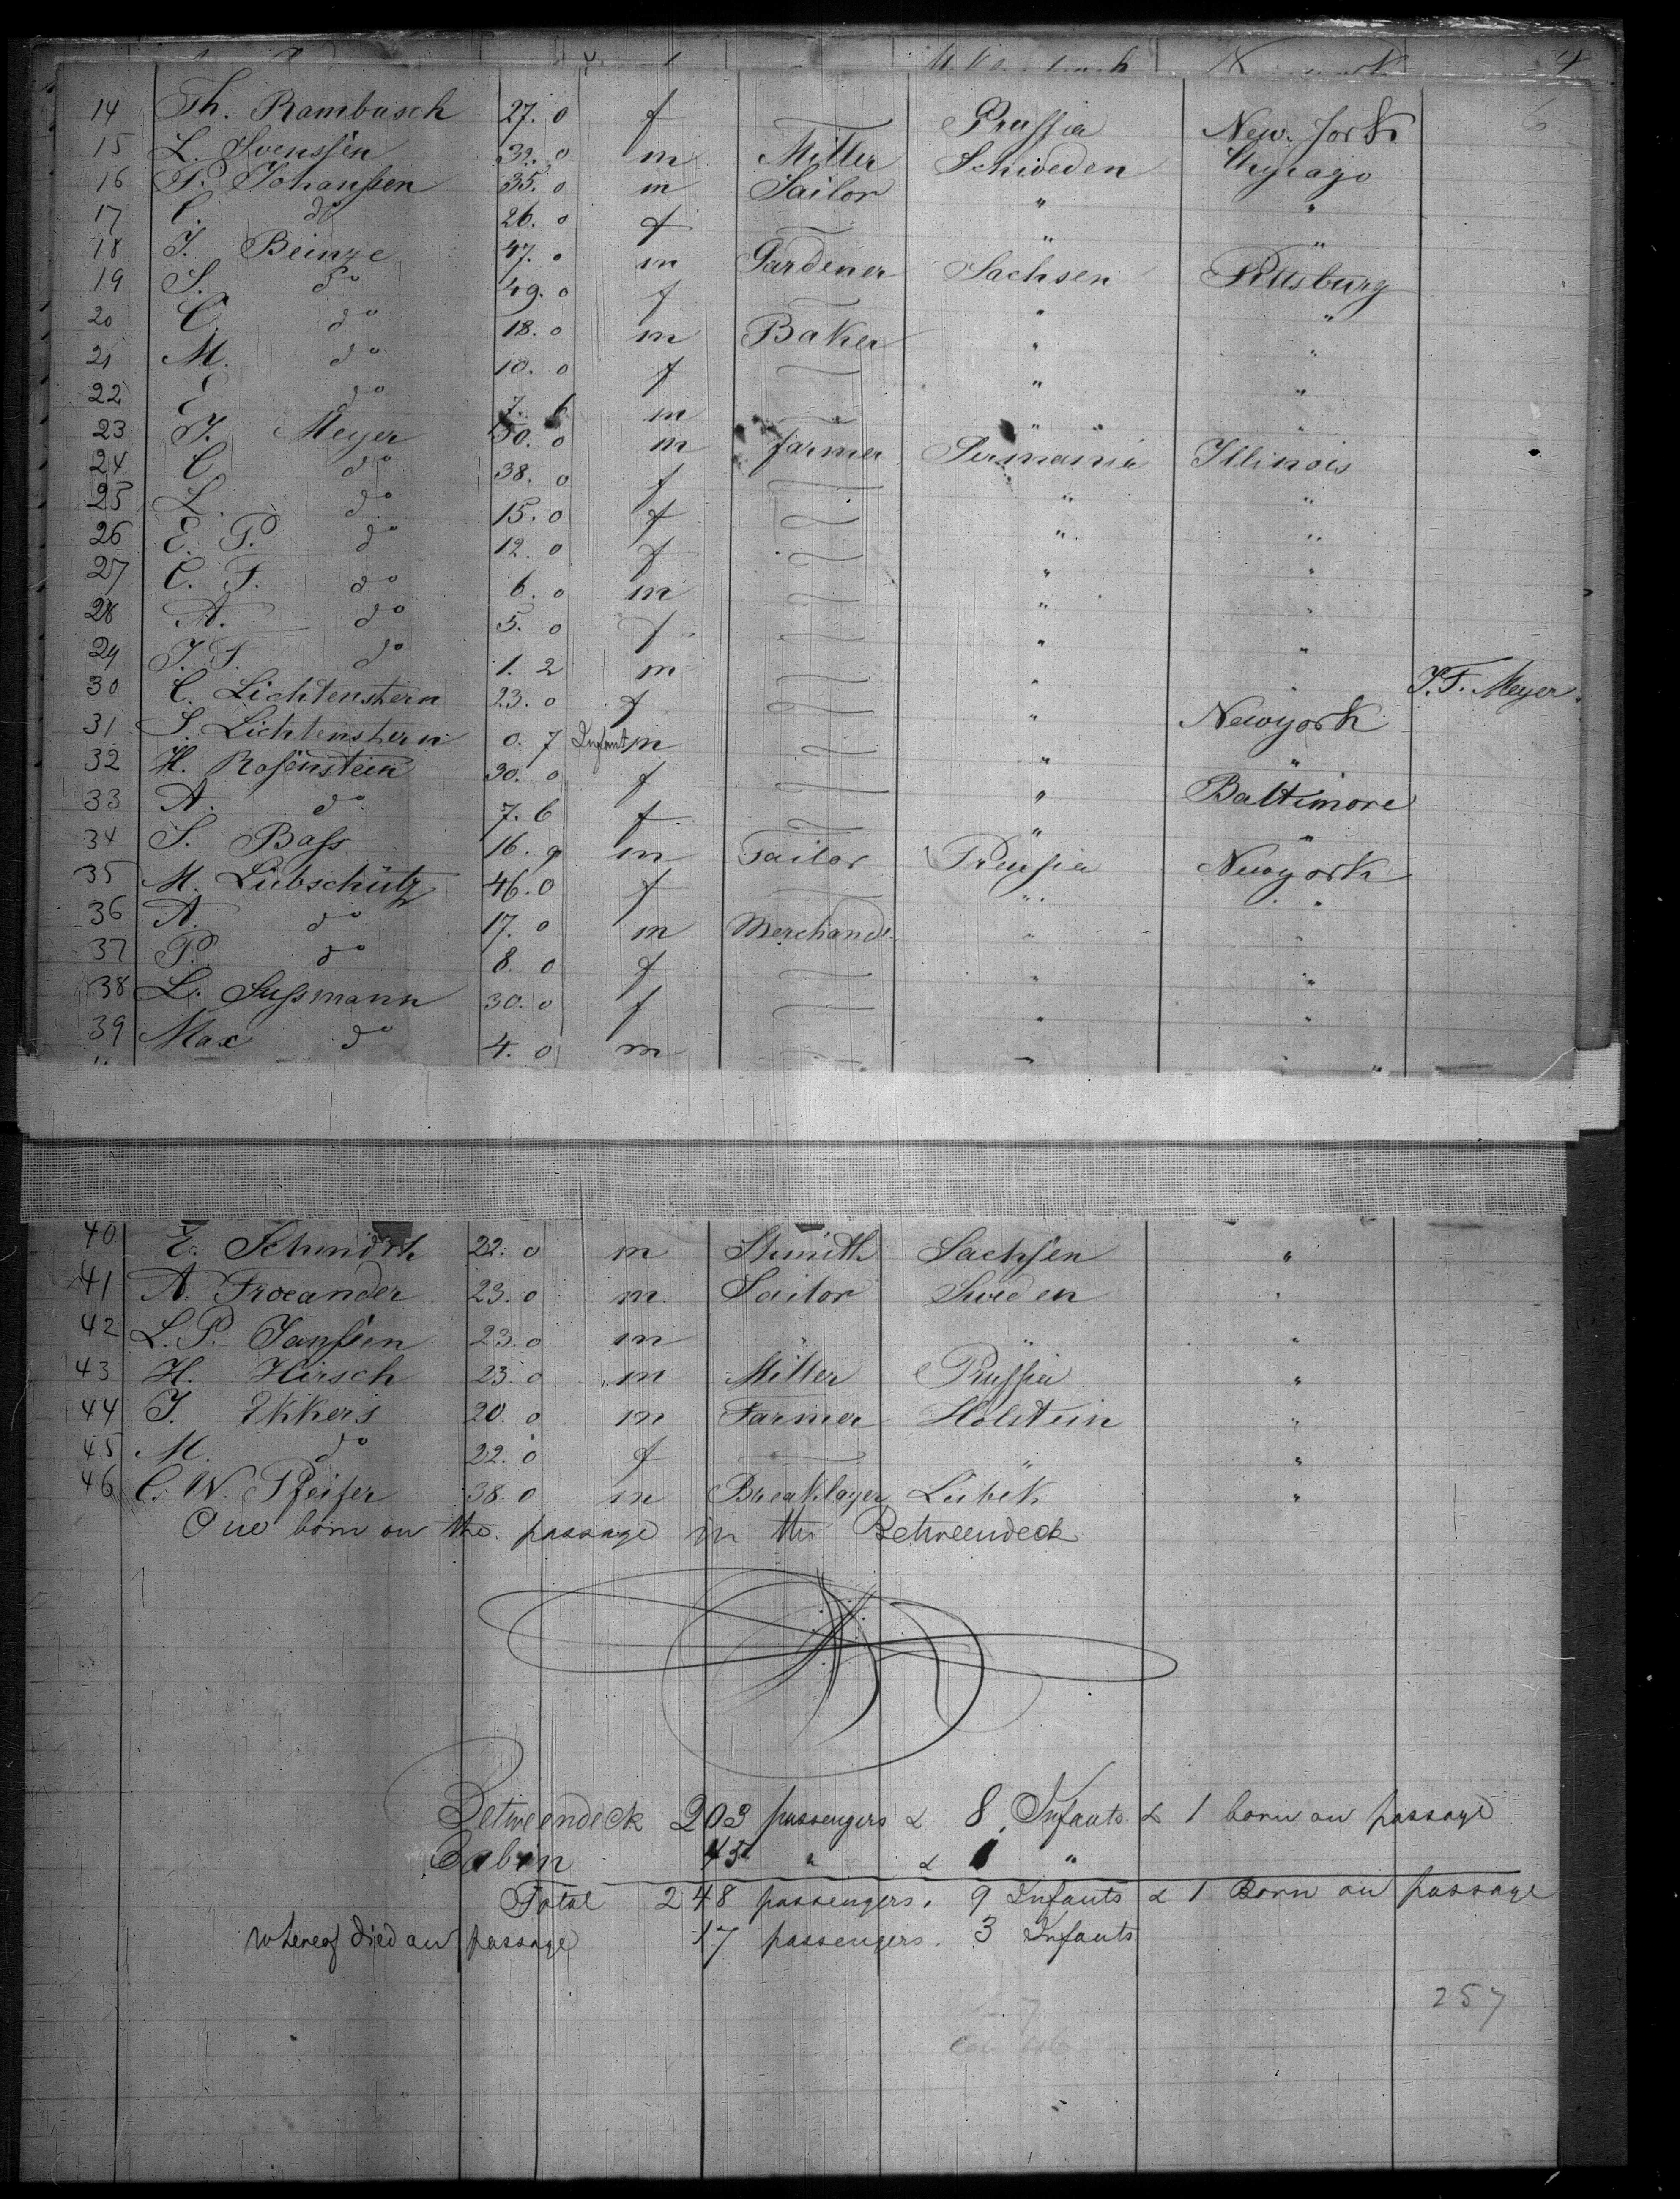 4
14 Th. Rambusch 27. 0 f Prussia New-York 6
15 L. Svenssen 32. 0 m Miller Schweden Chycago
16 P. Johanssen 35. 0 m Sailor " "
17 C. do 26. 0 f " "
18 J. Beinze 47. 0 m Gardener Sachsen Pittsburg
19 S. do 49. 0 f " "
20 C. do 18. 0 m Baker " "
21 M. do 10. 0 f " "
22 E do 7. 6 m " "
23 J. Meyer 50. 0 m farmer Germania Illinois
24 C. do 38. 0 f " "
25 L. do 15. 0 f " "
26 E. P. do 12. 0 f " "
27 C. F. do 6. 0 m " "
28 A. do 5. 0 f " "
29 J. F. do 1. 2 m " " J. F. Meyer
30 C. Lichtenstern 23. 0 f " Newyork
31 S. Lichtenstern 0. 7 Infant m " "
32 H. Rosenstein 30. 0 f " Baltimore
33 A. do 7. 6 f " "
34 S. Bass 16. 9 m Tailor Preussia Newyork
35 M. Liebschütz 46. 0 f " "
36 A. do 17. 0 m Merchand " "
37 P. do 8 0 f " "
38 L. Sussmann 30. 0 f " "
39 Max do 4. 0 m " "
40 E. Schmidth 22. 0 m Shmith Sachsen "
41 A. Troeander 23. 0 m. Sailor Sweden "
42 L. P. Janssen 23. 0 m " " "
43 H. Hirsch 23. 0 m Miller Prussia "
44 J. Ekkers 20. 0 m Farmer Holstein "
45 M. do 22. 0 f " "
46 C. W. Pfeifer 38. 0 m Breaklayer Lübek "
One born on the passage in the Betweendeck
Betweendeck 203 passengers & 8 Infants & 1 born on passage
Cabin 45 " & 1 "
Total 248 passengers. 9 Infants & 1 Born on passage
whereof died on passage 17 passengers. 3 Infants
257